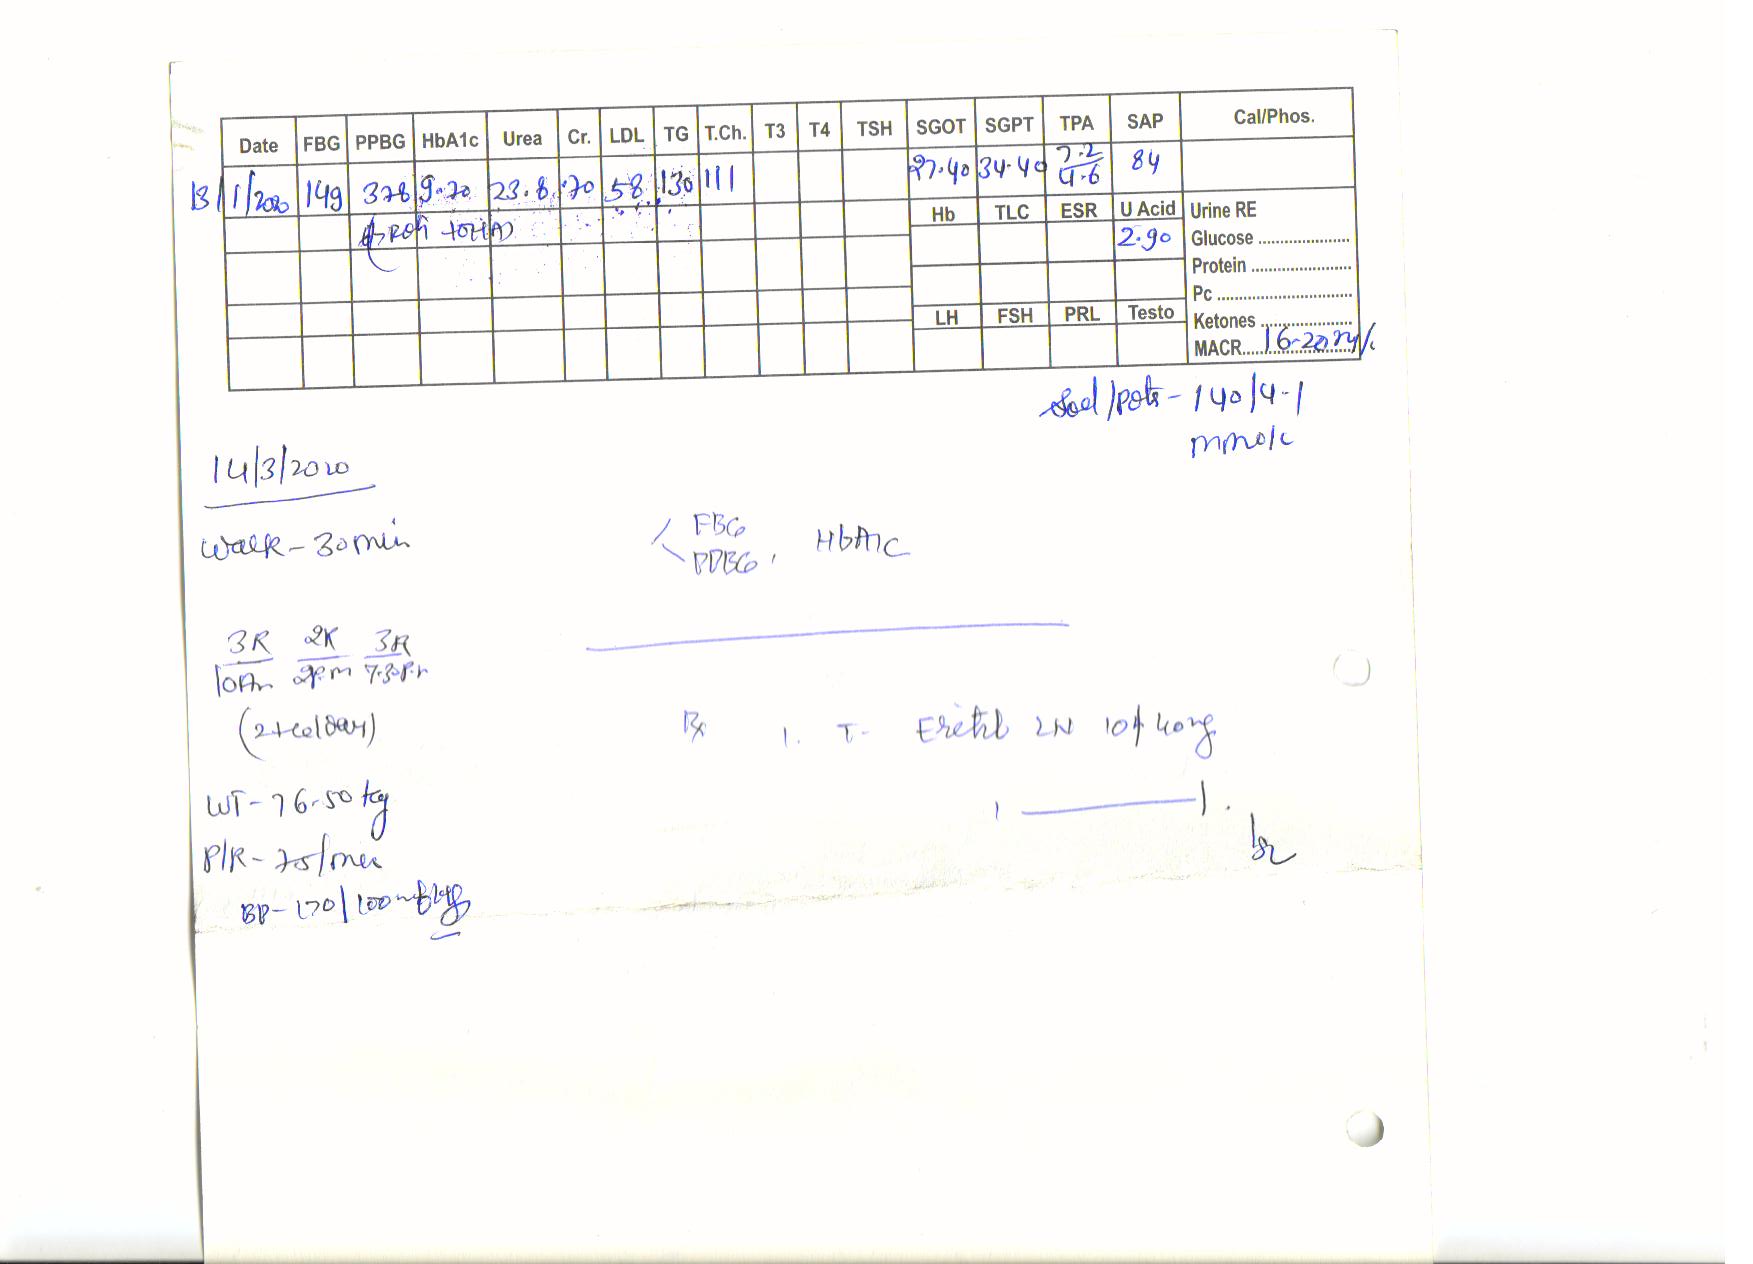 Date FBG PPBG HbA1c Urea Cr. LDL TG T.Ch. T3 T4 TSH SGOT SGPT TPA SAP Cal/Phos.
13/1/2020 149 378 9.70 23.8 .70 58 130 111 27.40 34.40 7.2/4.6 84
Hb TLC ESR U Acid Urine RE
2.90 Glucose
Protein
Pc
LH FSH PRL Testo Ketones
MACR 16-20
Sod/Pots - 140/4.1
14/3/2020
Walk - 30 min
FBG
PPBG, HbA1C
3R 2R 3R
10Am 2pm 7.30P.m
WT - 76.50 kg
P/R - 75/min
BP - 170/100 mmHg
Rx 1. T- 2N 10/40mg
1 1.